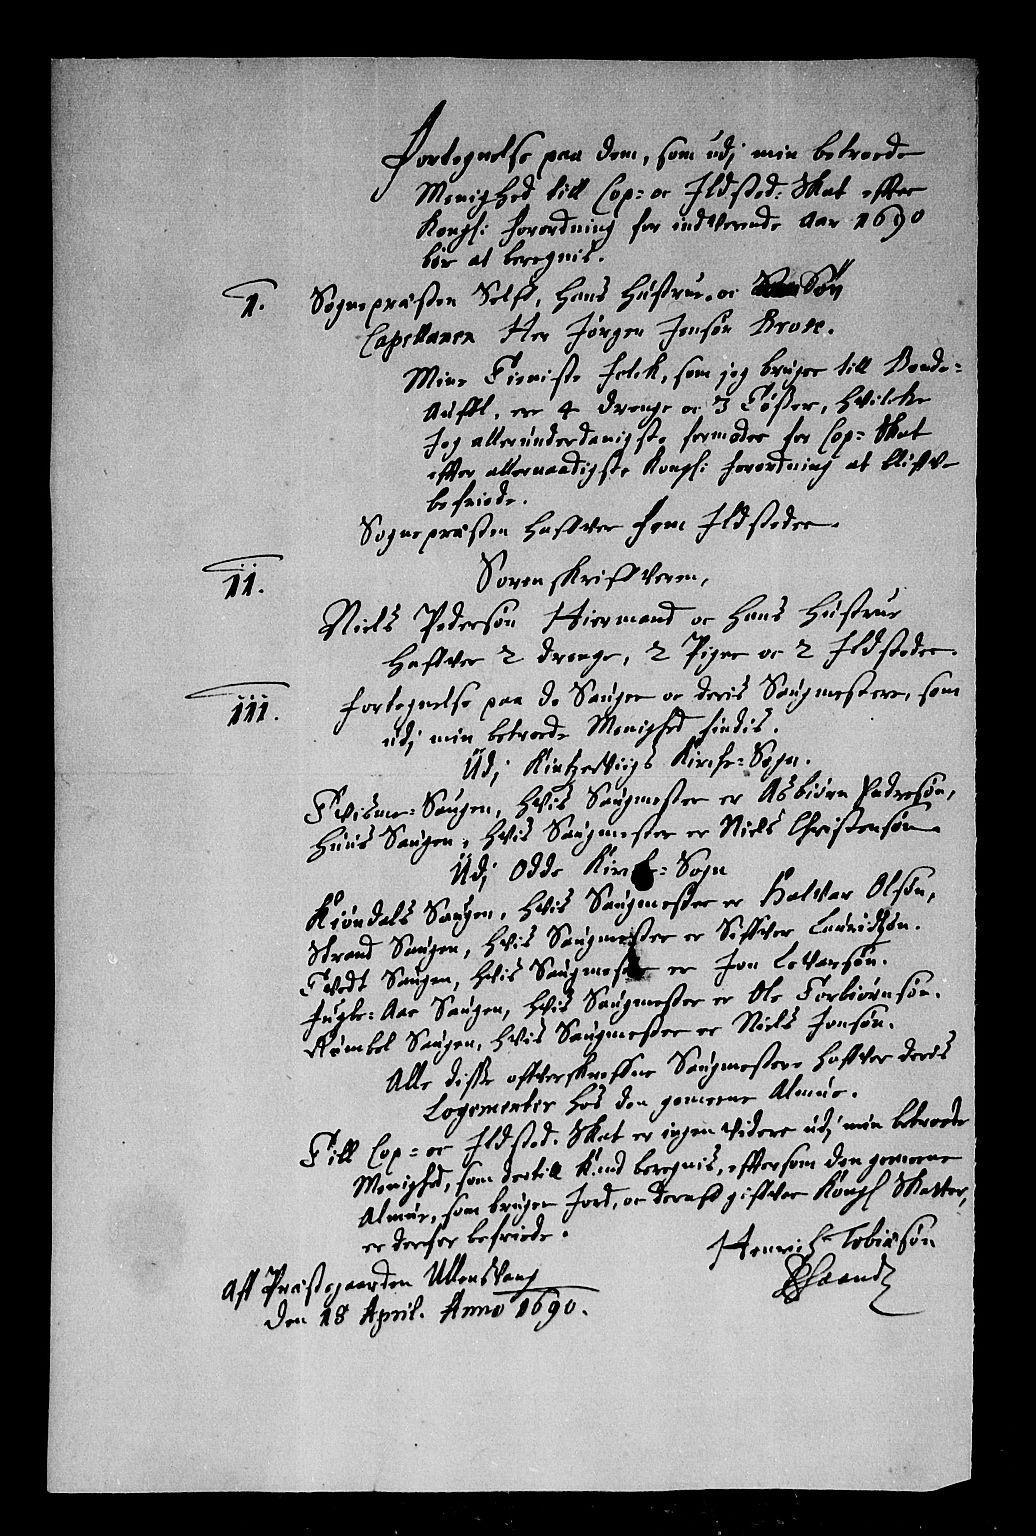 Fortegnelse paa dem, som udj min betroede
Menighed till Cop= oc Ildsted: Skat effter
Kongl: forordning for indVerende Aar 1690
bør at beregnis.
I. Sognepræsten Self, Hans Hustrue, oc Søn
Capellanen Her Jørgen Jensøn
Mine Tieniste folck, som jeg bruger till Bonde=
Aufl, ere 4 drenge oc 3 Tøsser, hvilcke
Jeg allerunderdanigste formoder for Cop= Skat
effter allernaadigste Kongl: forordning at bliffve
befriede.
Sognepræsten Haffver fem Ildsteder.
II. Sorenskriffveren,
Niels Pedersøn Hiermand oc Hans Hustrue
Haffver 2 drenge, 2 Piger oc 2 Ildsteder.
III. Fortegnelse paa de Sauger oc deris Saugmestere, som
udj min betroede Menighed findis.
Udj Kintzerviigs Kircke=Sogn.
Tvisme=Saugen, hvis Saugmester er Asbiørn Pedersøn,
Huus Saugen, hvis Saugmester er Niels Christensøn.
Udj Odde Kircke=Sogn
Kiøndals Saugen, hvis Saugmester er Halvar Olsøn,
Strand Saugen, hvis Saugmester er Siffver Lauridtzøn.
Tvedt Saugen, hvis Saugmester er Jon
Jugle=Aae Saugen, hvis Saugmester er Ole Torbiørnsøn.
Rømbel Saugen, hvis Saugmester er Niels Jonsøn.
Alle disse offverskreffne Saugmestere haffver deris
Logementer hos den gemeene Almue.
Till Cop= oc Ildsted. Skat er ingen videre udj min betroede
Menighed, som dertill kand beregnis, efftersom den gemeene
Almue, som bruger Jord, oc deraff giffver Kongl Skatter,
er derfor befriede.
Henrich Tobiæsøn
Aff Præstegaarden Ullensvang
den 18 April. Anno 1690.